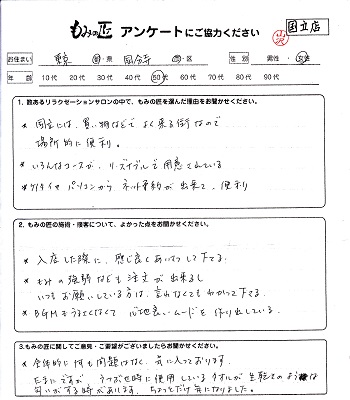 もみの匠 アンケートにご協力ください 国立店
お住まい 東京 都・県 国分寺 市・区 性別 男性・女性
年齢 10代 20代 30代 40代 50代 60代 70代 80代 90代
1. 数あるリラクゼーションサロンの中で、もみの匠を選んだ理由をお聞かせください。
* 国立には、買い物などで よく来る街なので
場所的に便利。
* いろんなコースが、リーズナブルで用意されている
* ケイタイや パソコンから ネット予約が出来て、便利
2. もみの匠の施術・接客について、よかった点をお聞かせください。
* 入店した際に、感じ良くあいさつして下さる。
* もみの強弱なども注文が出来るし
いつもお願いしている方は、言わなくてもわかって下さる。
* BGMもうるさくなくて 心地良いムードを作り出している。
3. もみの匠に関してご意見・ご要望がございましたらお聞かせください。
* 全体的に何も問題はなく、気に入っております。
たまにですが、うつぶせ時に使用しているタオルが生乾きのような
匂いがする時があります。ちょっとだけ気になりました。